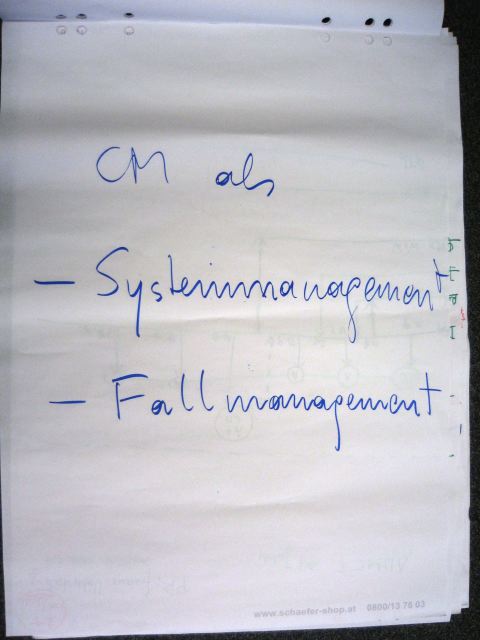 CM als
- Systemmanagement
- Fallmanagement
www.schaefer-shop.at 0800/13 76 03